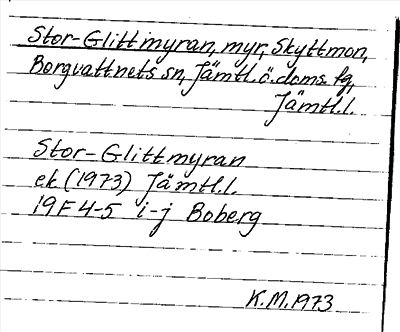 Stor-Glittmyran, myr, Skyttmon,
Borgvattnets sn, Jämtl.ö.doms.tg,
Jämtl.l.
Stor-Glittmyran
ek (1973) Jämtl.l.
19F 4-5 i-j Boberg
K.M.1973